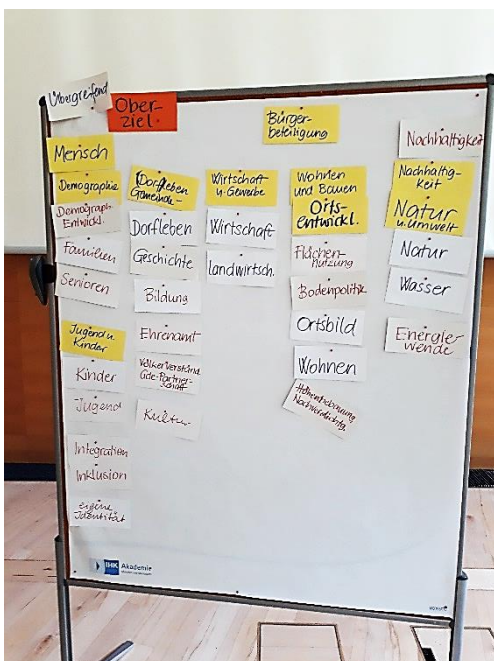 Übergreifend
Ober-
ziel
Bürger-
beteiligung
Nachhaltigkeit
Mensch
Demographie
Demograph.
Entwickl.
Familien
Senioren
Jugend u.
Kinder
Kinder
Jugend
Integration
Inklusion
eigene
Identität
Dorfleben
Gemeinde-
Dorfleben
Geschichte
Bildung
Ehrenamt
Völkerverständ.
Gde-Partner-
schaft
Kultur
Wirtschaft
u. Gewerbe
Wirtschaft
Landwirtsch.
Wohnen
und Bauen
Orts-
entwickl.
Flächen-
nutzung
Bodenpolitik
Ortsbild
Wohnen
Nachverdichtg.
Nachhaltig-
keit
Natur
u. Umwelt
Natur
Wasser
Energie-
wende
IHK Akademie